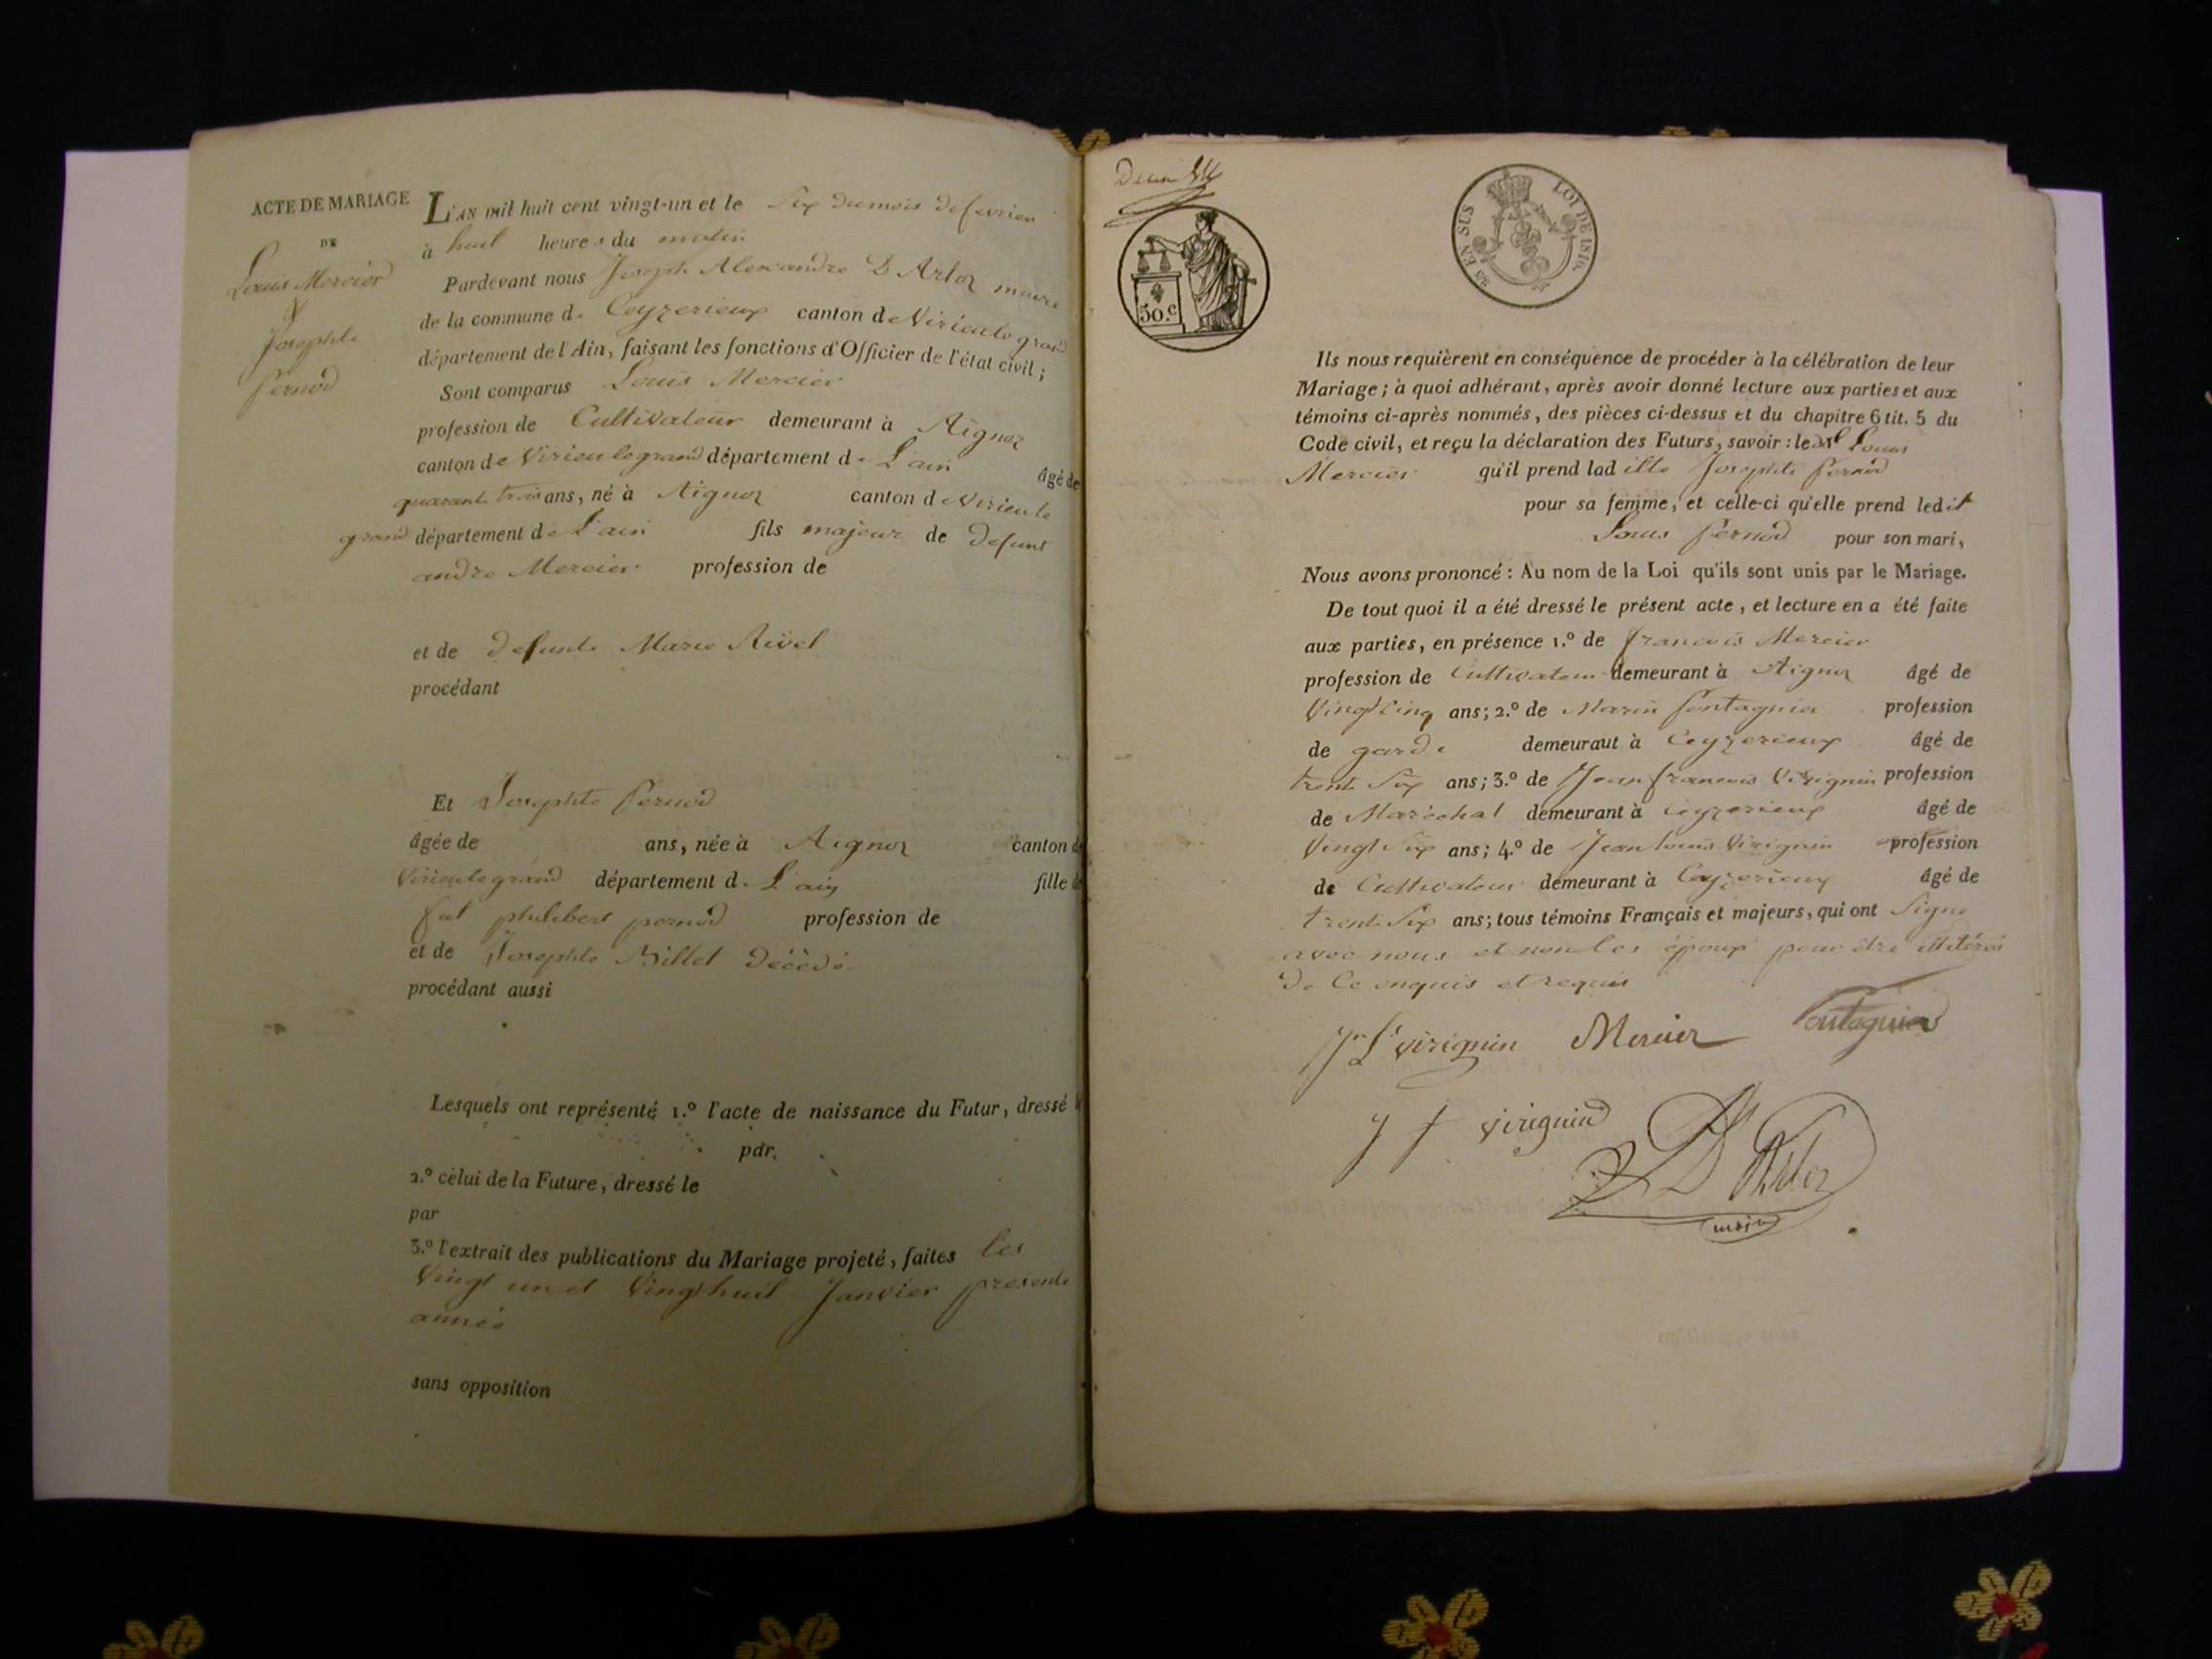 ACTE DE MARIAGE
DE
Louis Mercier
&
Josephte
Pernod
L'AN mil huit cent vingt-un et le Six du mois de fevrier
à huit heures du matin
Pardevant nous Joseph Alexandre D'Arloz maire
de la commune de Ceyzerieux canton de Virieu le grand
département de l'Ain, faisant les fonctions d'Officier de l'état civil;
Sont comparus Louis Mercier
profession de Cultivateur demeurant à Aignoz
canton de Virieu le grand département de L'ain âgé de
quarante trois ans, né à Aignoz canton de Virieu le
grand département de L'ain fils majeur de defunt
andre Mercier profession de
et de defunte Marie Rivel
procédant
Et Josephte Pernod
âgée de ans, née à Aignoz canton de
Virieu le grand département de L'ain fille de
feu philibert pernod profession de
et de Josephte Billet décédé
procédant aussi
Lesquels ont représenté 1.º l'acte de naissance du Futur, dressé le
par
2.º celui de la Future, dressé le
par
3.º l'extrait des publications du Mariage projeté, faites les
Vingt un et Vingt huit Janvier presente
année
sans opposition
50.c
EN SUS
LOI DE 1816.
Ils nous requièrent en conséquence de procéder à la célébration de leur
Mariage; à quoi adhérant, après avoir donné lecture aux parties et aux
témoins ci-après nommés, des pièces ci-dessus et du chapitre 6 tit. 5 du
Code civil, et reçu la déclaration des Futurs, savoir: le dit Louis
Mercier qu'il prend ladite Josephte Pernod
pour sa femme, et celle-ci qu'elle prend ledit
Louis Pernod pour son mari,
Nous avons prononcé: Au nom de la Loi qu'ils sont unis par le Mariage.
De tout quoi il a été dressé le présent acte, et lecture en a été faite
aux parties, en présence 1.º de francois Mercier
profession de Cultivateur demeurant à Aignoz âgé de
Vingt Cinq ans; 2.º de Marin fontagnier profession
de garde demeuraut à Ceyzerieux âgé de
trente Six ans; 3.º de Jean francois Virignin profession
de Maréchal demeurant à Ceyzerieux âgé de
Vingt Six ans; 4.º de Jean Louis Virignin profession
de Cultivateur demeurant à Ceyzerieux âgé de
trente Six ans; tous témoins Français et majeurs, qui ont Signé
avec nous et non les époux pour être illitérés
de Ce enquis et requis
Jn Ls virignin Mercier fontagnier
J f virignin
D'Arloz
maire